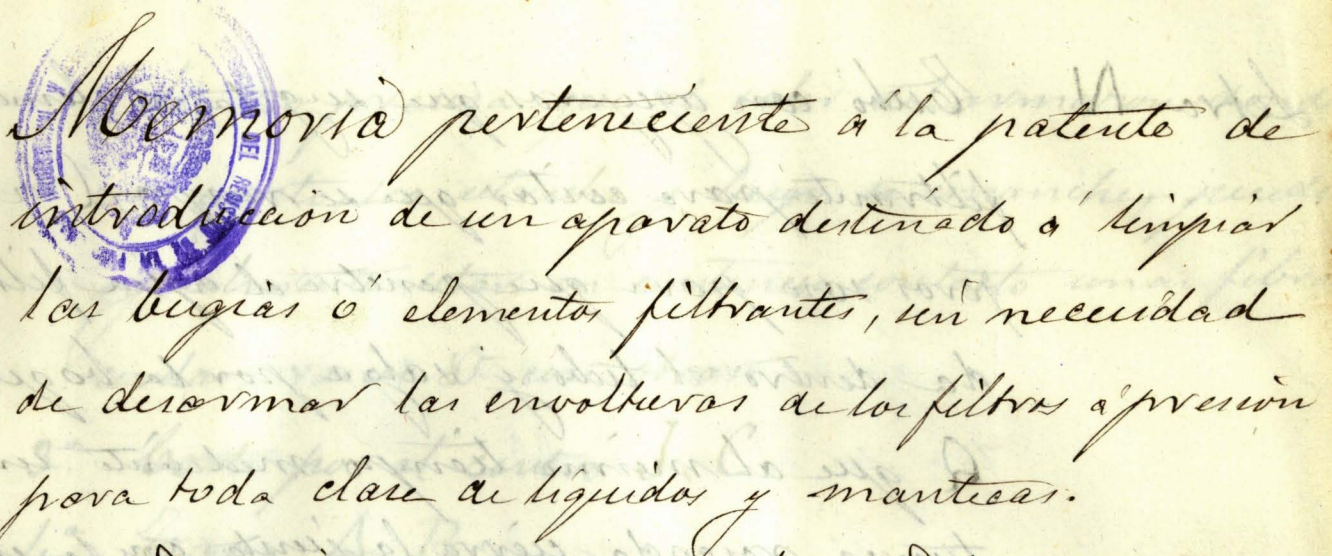 Memoria perteneciente á la patente de
introduccion de un aparato destinado á limpiar
las bugias ó elementos filtrantes, sin necesidad
de desarmar las envolturas de los filtros á presion
para toda clase de liquidos y mantecas.